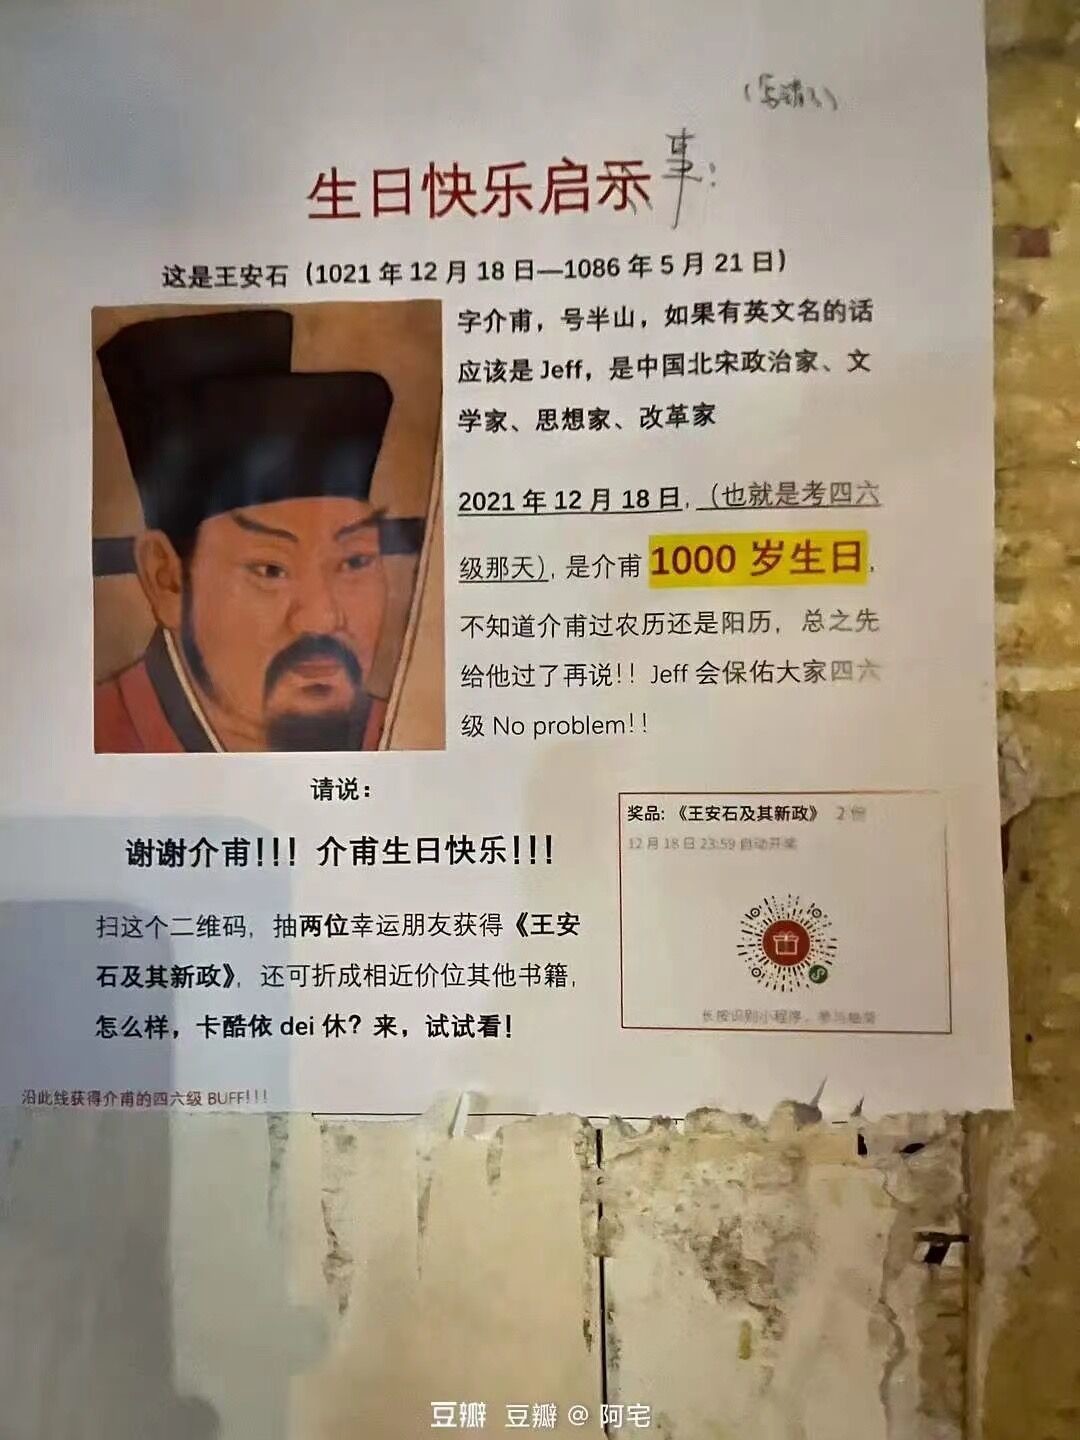 （写错了）
生日快乐启示事：
这是王安石（1021 年 12 月 18 日—1086 年 5 月 21 日）
字介甫，号半山，如果有英文名的话
应该是 Jeff，是中国北宋政治家、文
学家、思想家、改革家
2021 年 12 月 18 日，（也就是考四六
级那天），是介甫 1000 岁生日，
不知道介甫过农历还是阳历，总之先
给他过了再说！！Jeff 会保佑大家四六
级 No problem！！
请说：
谢谢介甫！！！介甫生日快乐！！！
扫这个二维码，抽两位幸运朋友获得《王安
石及其新政》，还可折成相近价位其他书籍，
怎么样，卡酷依 dei 休？来，试试看！
奖品：《王安石及其新政》 2 份
12 月 18 日 23:59 自动开奖
长按识别小程序，参与抽奖
沿此线获得介甫的四六级 BUFF！！！
豆瓣 豆瓣 @ 阿宅